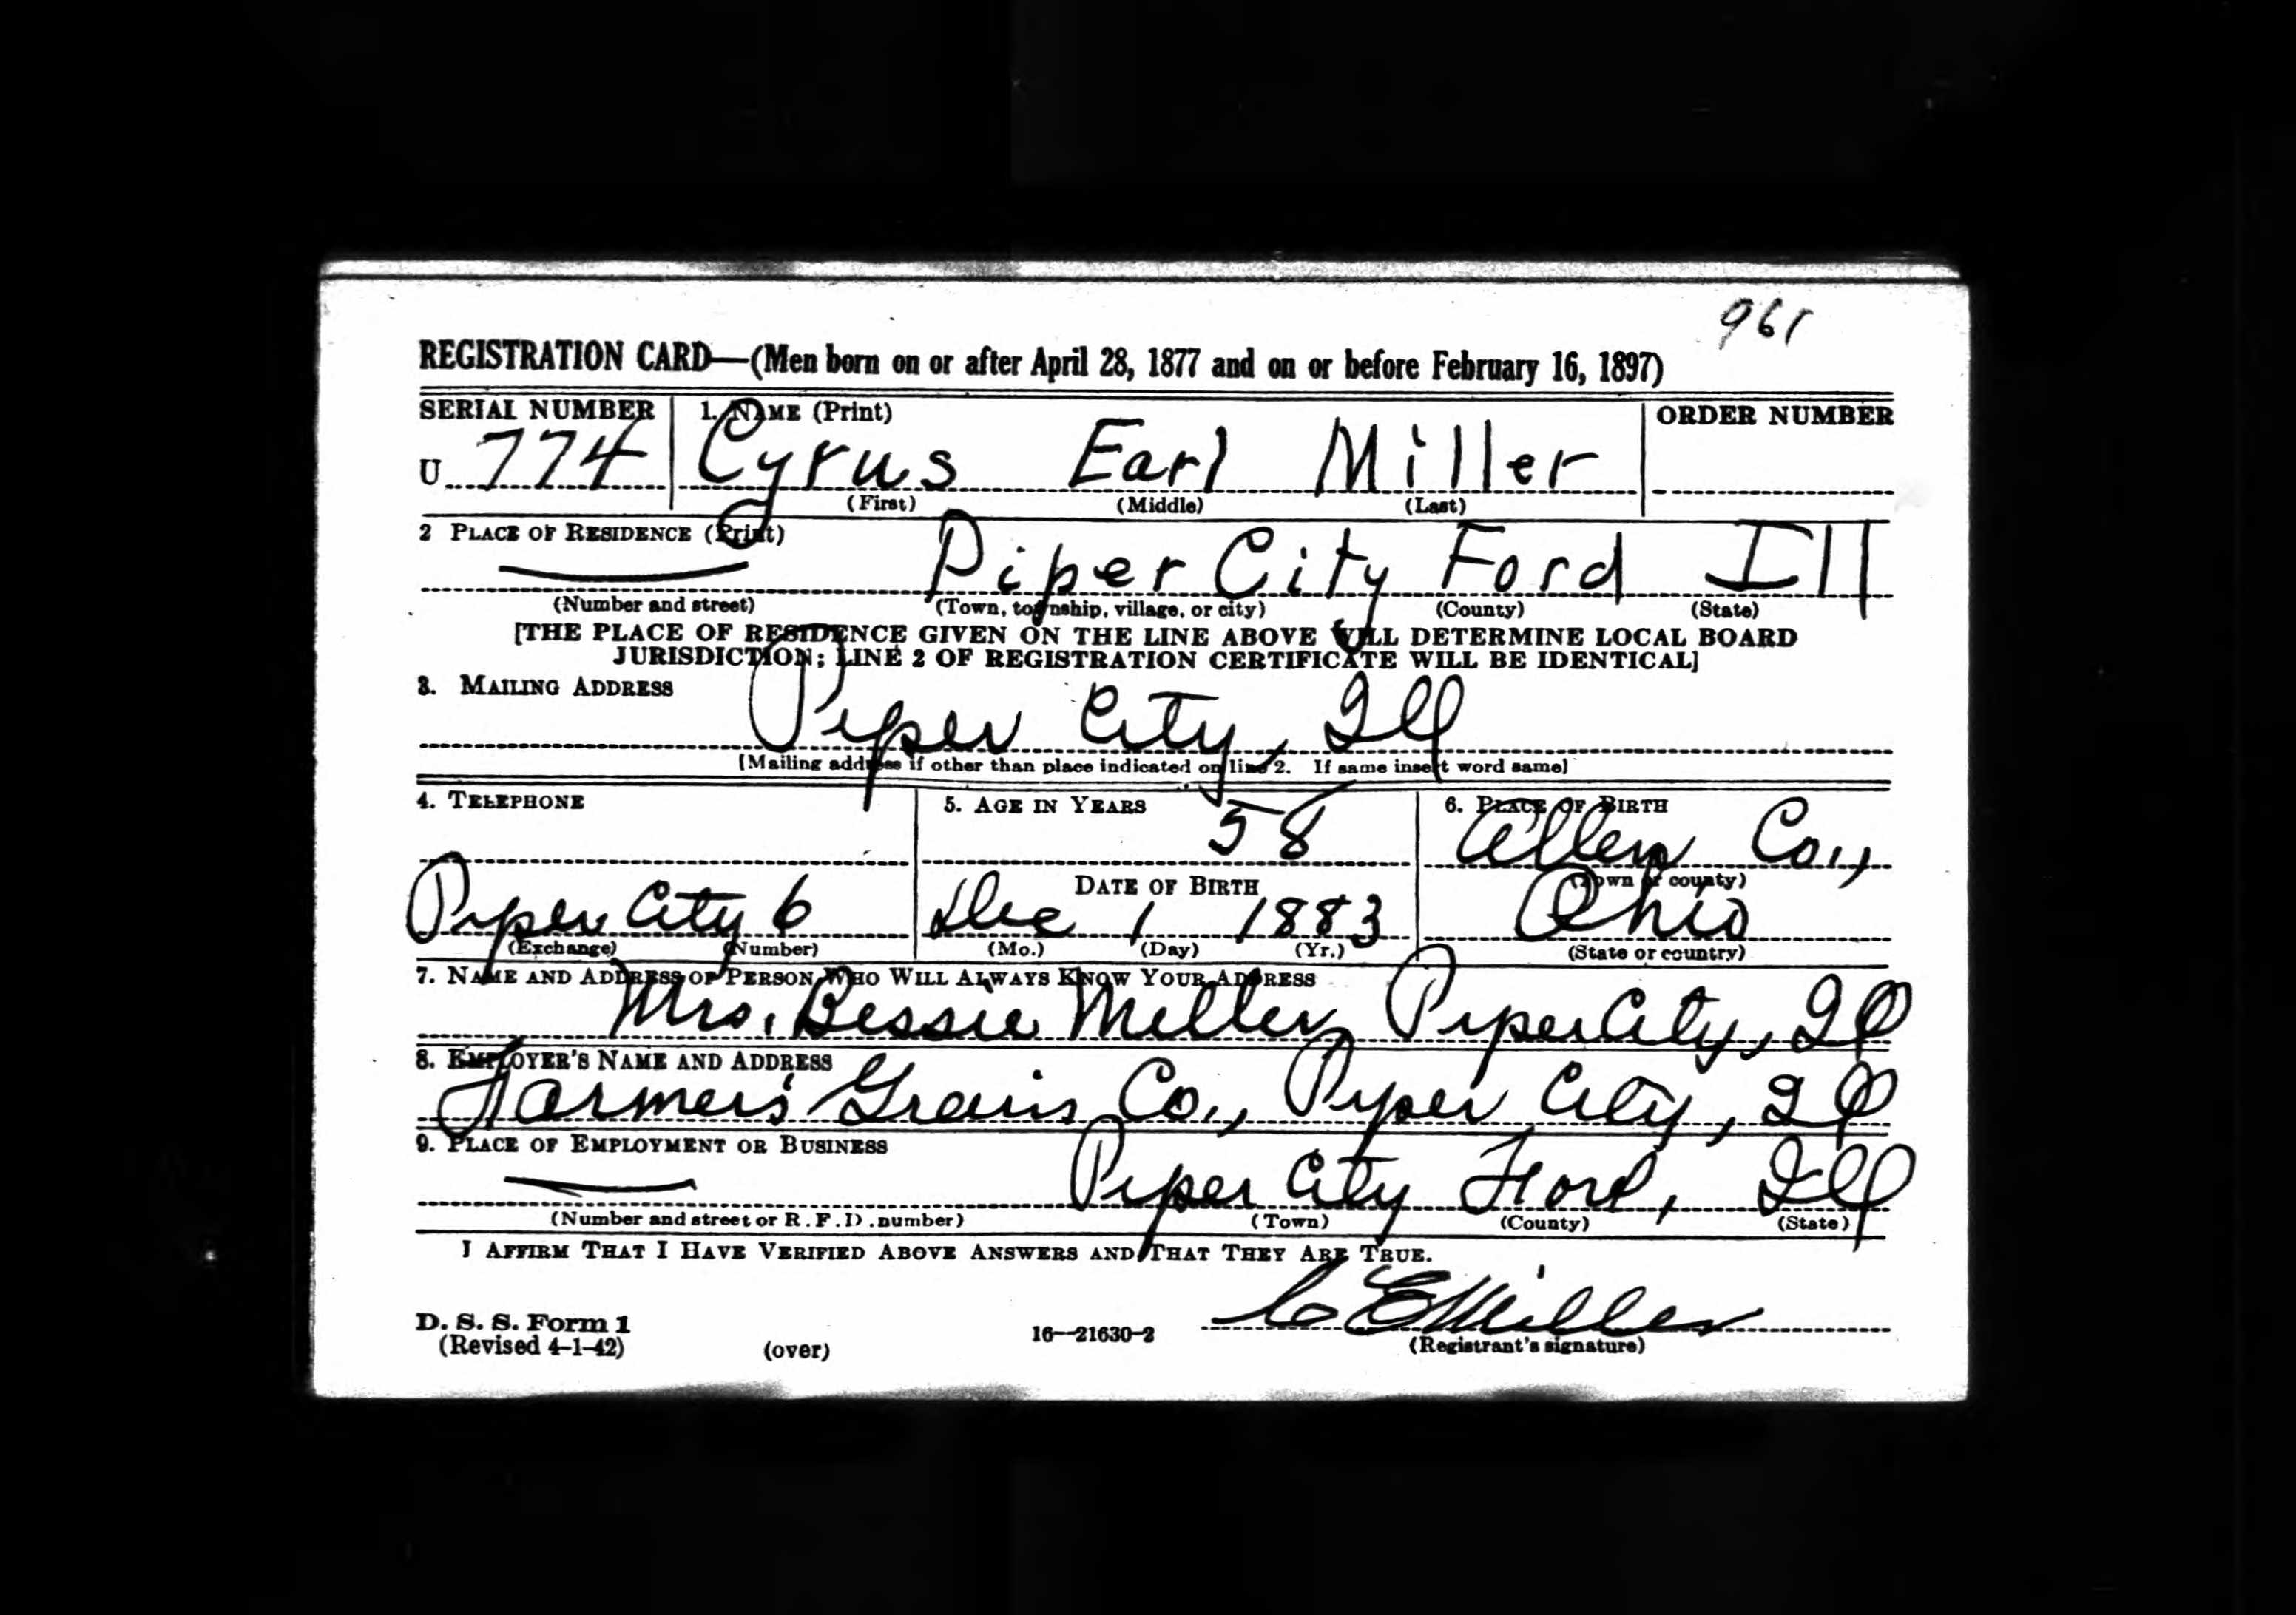 961
REGISTRATION CARD—(Men born on or after April 28, 1877 and on or before February 16, 1897)
SERIAL NUMBER 1. NAME (Print) ORDER NUMBER
U 774 Cyrus Earl Miller
(First) (Middle) (Last)
2 PLACE OF RESIDENCE (Print)
Piper City Ford Ill
(Number and street) (Town, township, village, or city) (County) (State)
[THE PLACE OF RESIDENCE GIVEN ON THE LINE ABOVE WILL DETERMINE LOCAL BOARD
JURISDICTION; LINE 2 OF REGISTRATION CERTIFICATE WILL BE IDENTICAL]
3. MAILING ADDRESS
Piper City, Ill
[Mailing address if other than place indicated on line 2. If same insert word same]
4. TELEPHONE 5. AGE IN YEARS 6. PLACE OF BIRTH
58 Allen Co.,
DATE OF BIRTH (Town or county)
Piper City 6 Dec 1 1883 Ohio
(Exchange) (Number) (Mo.) (Day) (Yr.) (State or country)
7. NAME AND ADDRESS OF PERSON WHO WILL ALWAYS KNOW YOUR ADDRESS
Mrs. Bessie Miller, Piper City, Ill
8. EMPLOYER'S NAME AND ADDRESS
Farmer's Grain Co., Piper City, Ill
9. PLACE OF EMPLOYMENT OR BUSINESS
Piper City Ford, Ill
(Number and street or R.F.D. number) (Town) (County) (State)
I AFFIRM THAT I HAVE VERIFIED ABOVE ANSWERS AND THAT THEY ARE TRUE.
C E Miller
D. S. S. Form 1
(Revised 4-1-42) (over) 16—21630-2 (Registrant's signature)